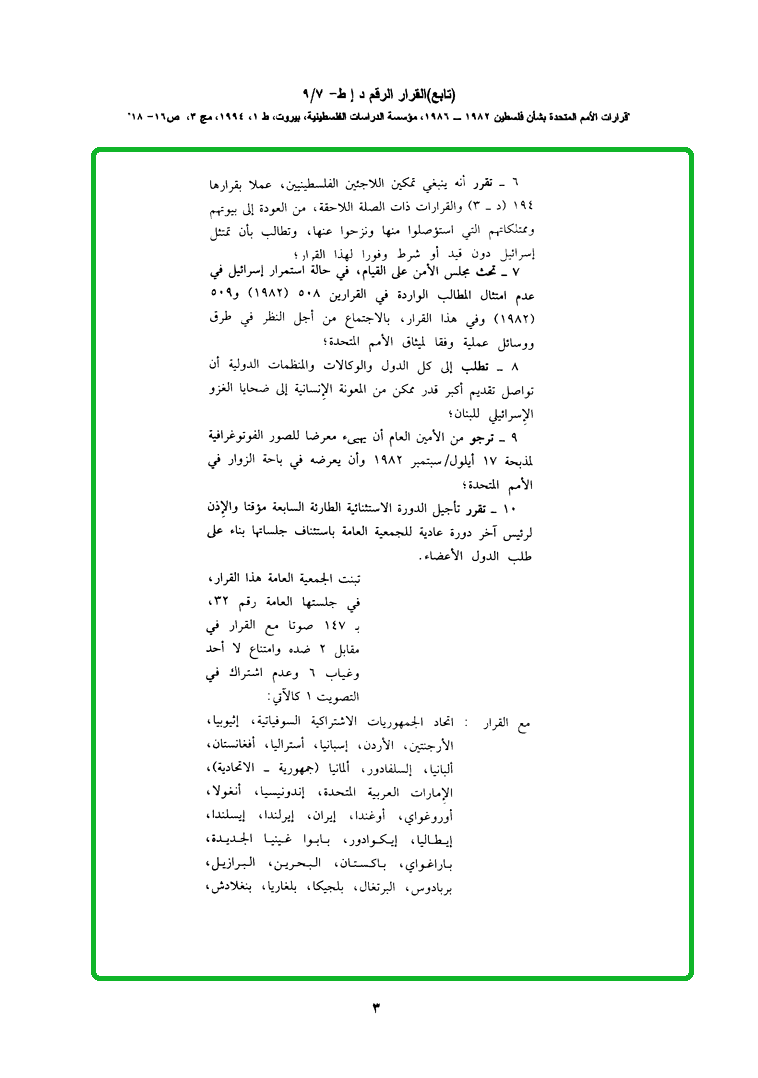 (تابع)القرار الرقم د إ ط- ٩/٧
"قرارات الأمم المتحدة بشأن فلسطين ١٩٨٢ ــ ١٩٨٦، مؤسسة الدراسات الفلسطينية، بيروت، ط ١، ١٩٩٤، مج ٣، ص١٦- ١٨"
٦ ــ تقرر أنه ينبغي تمكين اللاجئين الفلسطينيين، عملا بقرارها
١٩٤ (د ــ ٣) والقرارات ذات الصلة اللاحقة، من العودة إلى بيوتهم
وممتلكاتهم التي استؤصلوا منها ونزحوا عنها، وتطالب بأن تمتثل
إسرائيل دون قيد أو شرط وفورا لهذا القرار؛
٧ ــ تحث مجلس الأمن على القيام، في حالة استمرار إسرائيل في
عدم امتثال المطالب الواردة في القرارين ٥٠٨ (١٩٨٢) و٥٠٩
(١٩٨٢) وفي هذا القرار، بالاجتماع من أجل النظر في طرق
ووسائل عملية وفقا لميثاق الأمم المتحدة؛
٨ ــ تطلب إلى كل الدول والوكالات والمنظمات الدولية أن
تواصل تقديم أكبر قدر ممكن من المعونة الإنسانية إلى ضحايا الغزو
الإسرائيلي للبنان؛
٩ ــ ترجو من الأمين العام أن يهيىء معرضا للصور الفوتوغرافية
لمذبحة ١٧ أيلول/سبتمبر ١٩٨٢ وأن يعرضه في باحة الزوار في
الأمم المتحدة؛
١٠ ــ تقرر تأجيل الدورة الاستثنائية الطارئة السابعة مؤقتا والإذن
لرئيس آخر دورة عادية للجمعية العامة باستئناف جلساتها بناء على
طلب الدول الأعضاء.
تبنت الجمعية العامة هذا القرار،
في جلستها العامة رقم ٣٢،
بـ ١٤٧ صوتا مع القرار في
مقابل ٢ ضده وامتناع لا أحد
وغياب ٦ وعدم اشتراك في
التصويت ١ كالآتي:
مع القرار : اتحاد الجمهوريات الاشتراكية السوفياتية، إثيوبيا،
الأرجنتين، الأردن، إسبانيا، أستراليا، أفغانستان،
ألبانيا، إلسلفادور، ألمانيا (جمهورية ــ الاتحادية)،
الإمارات العربية المتحدة، إندونيسيا، أنغولا،
أوروغواي، أوغندا، إيران، إيرلندا، إيسلندا،
إيطاليا، إيكوادور، بابوا غينيا الجديدة،
باراغواي، باكستان، البحرين، البرازيل،
بربادوس، البرتغال، بلجيكا، بلغاريا، بنغلادش،
٣